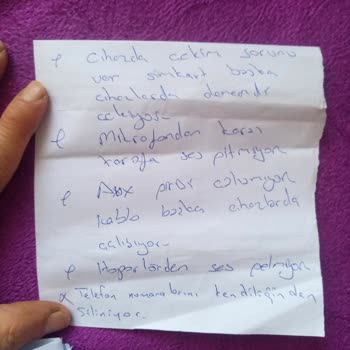 Cihazda çekim sorunu
var simkart başka
cihazlarda denendi
çekiyor.
Mikrofondan karşı
tarafa ses gitmiyor
Aux girişi çalışmıyor
kablo başka cihazlarda
çalışıyor.
Hoparlörden ses gelmiyor
x Telefon numaralarını kendiliğinden
Siliniyor.